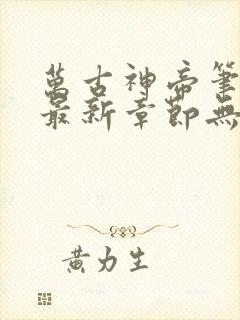 萬古神帝筆
最新章節無
黃力生